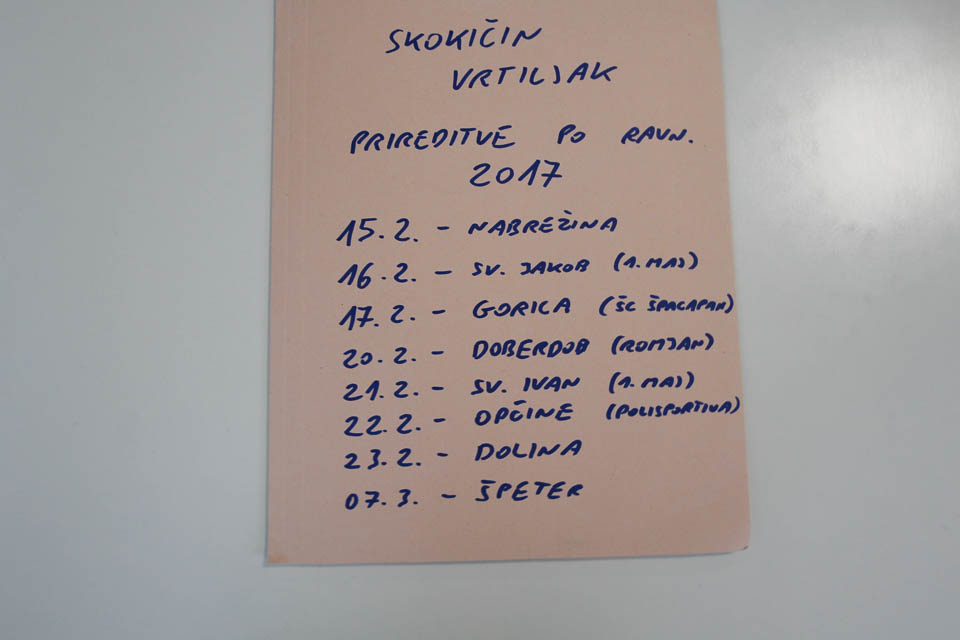 SKOKIČIN
VRTILJAK
PRIREDITVE PO RAVN.
2017
15.2. - NABREŽINA
16.2. - SV. JAKOB (1. MAJ)
17.2. - GORICA (ŠC ŠPACAPAN)
20.2. - DOBERDOB (ROMJAN)
21.2. - SV. IVAN (1. MAJ)
22.2. - OPČINE (POLISPORTIVA)
23.2. - DOLINA
07.3. - ŠPETER